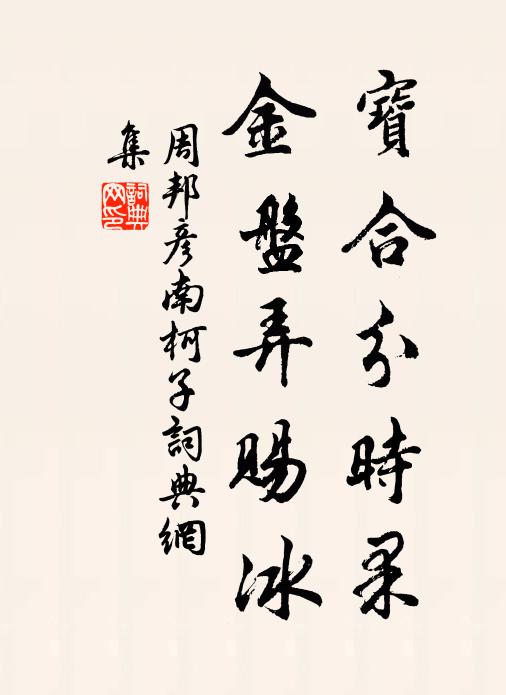 寶合分時果
金盤弄賜冰
周邦彥南柯子詞典網
集
詞典網印